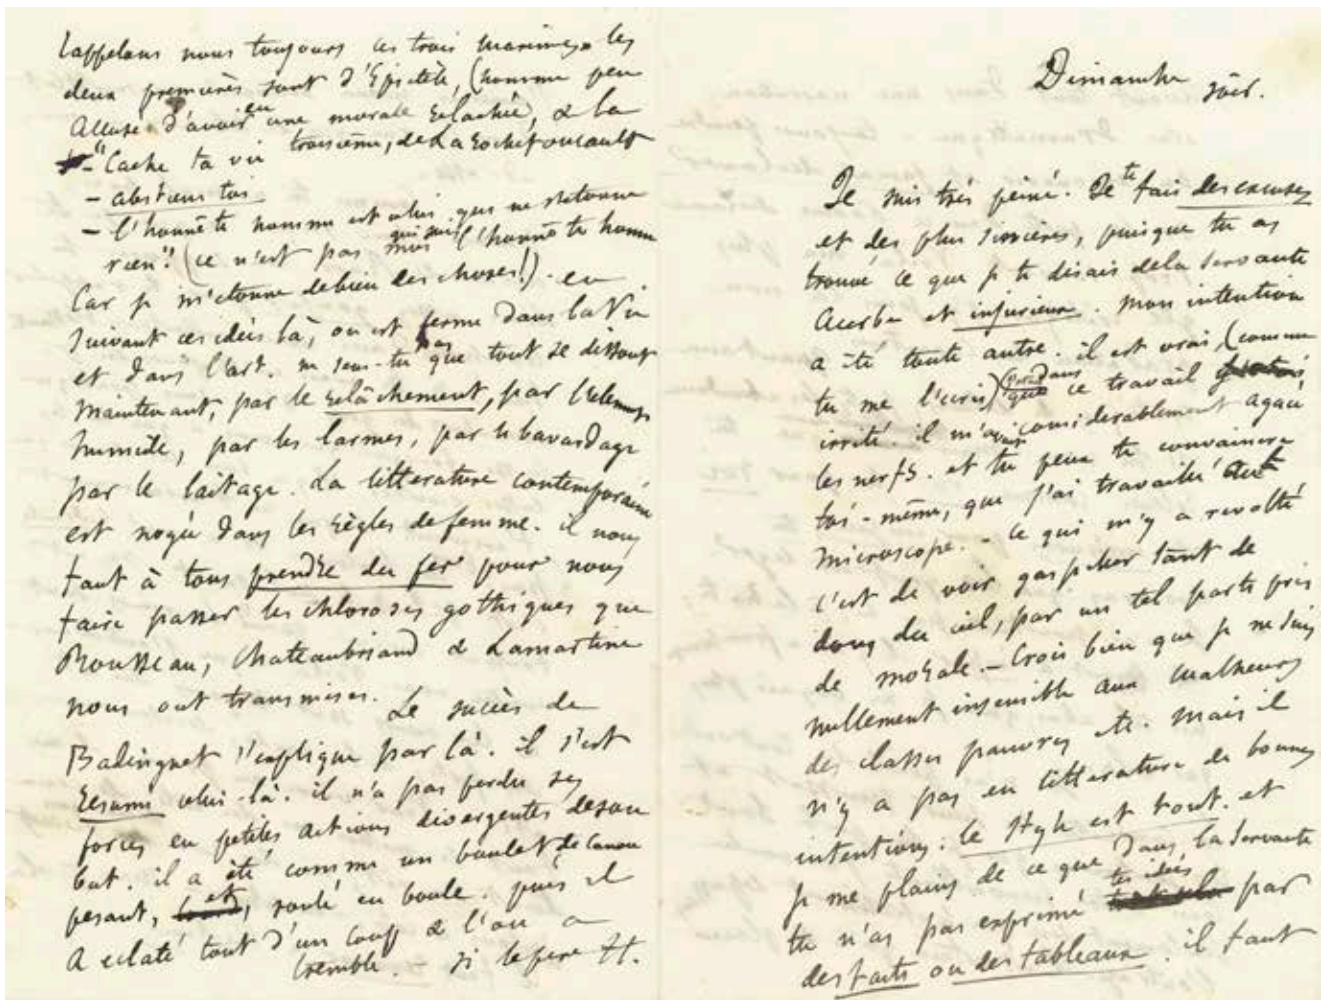 rappelons nous toujours ces trois maximes les
deux premières sont d'Epictète, (homme peu
accusé d'avoir eu une morale relâchée, & la
troisième, de La Rochefoucault
– "Cache ta vie
– abstiens toi
– l'honnête homme est celui qui ne s'etonne
rien". (ce n'est pas moi qui suis l'honnête homme
Car je m'etonne de bien des choses!). en
suivant ces idées là, on est ferme dans la Vie
et dans l'art. ne sens-tu pas que tout se dissout
maintenant, par le relâchement, par l'élément
humide, par les larmes, par le bavardage
par le laitage. La litterature contemporaine
est noyée dans les règles de femme. il nous
faut à tous prendre du fer pour nous
faire passer les chloroses gothiques que
Rousseau, Chateaubriand & Lamartine
nous ont transmises. Le succès de
Badinguet s'explique par là. il s'est
résumé celui-là. il n'a pas perdu ses
forces en petites actions divergentes de son
but. il a été comme un boulet de canon
pesant, et roulé en boule. puis il
a eclaté tout d'un coup & l'on a
tremblé. – si le père H.
Dimanche
soir.
Je suis très peiné. Je te fais des excuses
et des plus sincères, puisque tu as
trouvé ce que je te disais de la servante
acerbe et injurieux. mon intention
a été toute autre. il est vrai, (comme
tu me l'écris) que dans ce travail
irrité. il m'avait considerablement agacé
les nerfs. et tu peux te convaincre
toi-même, que j'ai travaillé au
microscope. – ce qui m'y a revolté
c'est de voir gaspiller tant de
dons du ciel, par un tel parti pris
de morale. – Crois bien que je ne suis
nullement insensible aux malheurs
des classes pauvres etc. mais il
n'y a pas en litterature de bonnes
intentions: le style est tout. et
je me plains de ce que dans la Servante
tu n'as pas exprimé tes idées par
des faits ou des tableaux. il faut